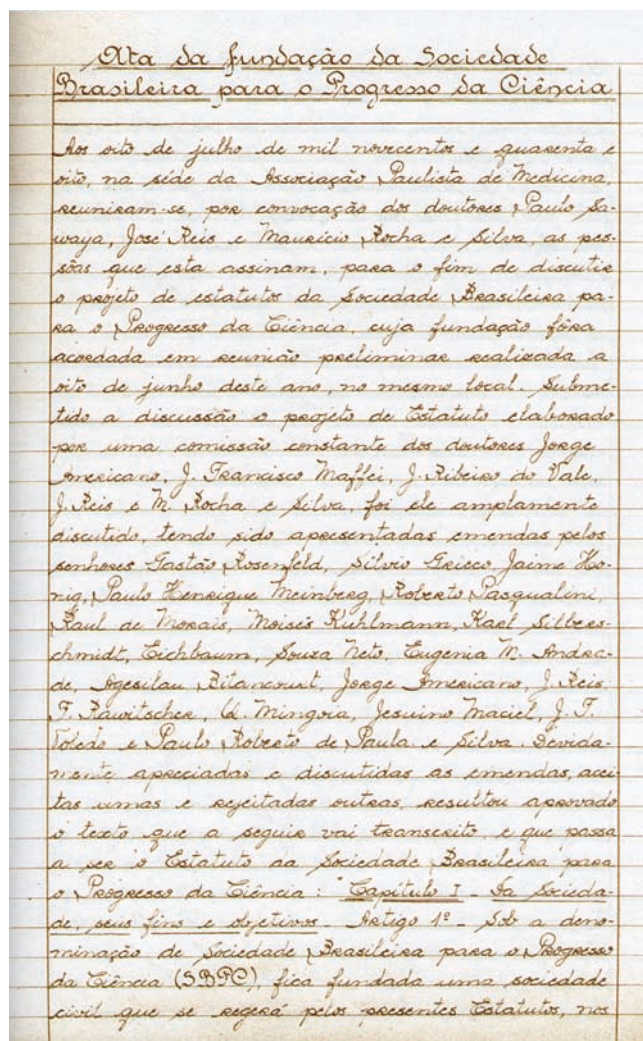 Ata da fundação da Sociedade
Brasileira para o Progresso da Ciência
Aos oito de julho de mil novecentos e quarenta e
oito, na séde da Associação Paulista de Medicina,
reuniram-se, por convocação dos doutores Paulo Sa-
waya, José Reis e Mauricio Rocha e Silva, as pes-
sôas que esta assinam, para o fim de discutir
o projeto de estatutos da Sociedade Brasileira pa-
ra o Progresso da Ciência, cuja fundação fôra
acordada em reunião preliminar realizada a
oito de junho deste ano, no mesmo local. Subme-
tido a discussão o projeto de Estatuto elaborado
por uma comissão constante dos doutores Jorge
Americano, J. Francisco Maffei, J. Ribeiro do Vale,
J. Reis e M. Rocha e Silva, foi ele amplamente
discutido, tendo sido apresentadas emendas pelos
senhores Gastão Rosenfeld, Silvio Grieco, Jaime Ho-
nig, Paulo Henrique Meinberg, Roberto Pasqualini,
Raul de Morais, Moisés Kuhlmann, Karl Silbers-
chmidt, Eichbaum, Souza Neto, Eugenia M. Andra-
de, Agesilau Bitancourt, Jorge Americano, J. Reis,
F. Rawitscher, Q. Mingoia, Jesuino Maciel, J. F.
Toledo e Paulo Roberto de Paula e Silva. Devida-
mente apreciadas e discutidas as emendas, acei-
tas umas e rejeitadas outras, resultou aprovado
o texto que a seguir vai transcrito e que passa
a ser o Estatuto da Sociedade Brasileira para
o Progresso da Ciência: "Capítulo I - Da Socieda-
de, seus fins e objetivos - Artigo 1º - Sob a deno-
minação de Sociedade Brasileira para o Progresso
da Ciência (SBPC), fica fundada uma sociedade
civil que se regerá pelos presentes Estatutos, nos